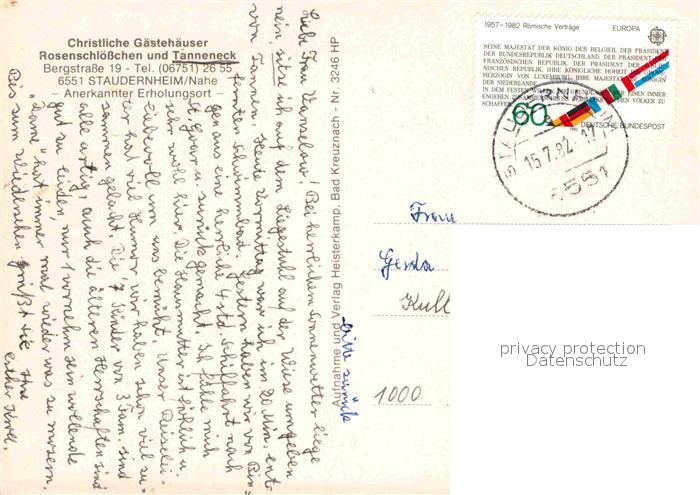 Christliche Gästehäuser
Rosenschlößchen und Tanneneck
Bergstraße 19 - Tel. (06751) 26 55
6551 STAUDERNHEIM/Nahe
– Anerkannter Erholungsort –
Liebe Frau! Bei herrlichem Sonnenwetter liege
nein, sitze ich auf dem Liegestuhl auf der Wiese umgeben
von Tannen. Heute Vormittag war ich im 20 Min. ent-
fernten Schwimmbad. Gestern haben wir von Bin-
gen aus eine herrliche 4 std Schiffahrt nach
St. Goar u. zurück gemacht. Ich fühle mich
sehr wohl hier. Die Hausmutter ist fröhlich u.
liebevoll um uns bemüht. Unser
hat viel Humor wir haben schon viel zu-
sammen gelacht. Die 7 Kinder von 3 Fam. sind
alle artig, auch die älteren Herrschaften sind
gut zu leiden, nur 1 vornehm sein wollende
"Dame" hat immer mal wieder was zu mosern.
Bis zum Wiedersehen grüßt Sie Ihre
Esther
Aufnahme und Verlag Heisterkamp, Bad Kreuznach - Nr. 3246 HP
bitte zurück
1957–1982 Römische Verträge
EUROPA
CEPT
SEINE MAJESTÄT DER KÖNIG DER BELGIER, DER PRÄSIDENT
DER BUNDESREPUBLIK DEUTSCHLAND, DER PRÄSIDENT DER
FRANZÖSISCHEN REPUBLIK, DER PRÄSIDENT DER ITALIE-
NISCHEN REPUBLIK, IHRE KÖNIGLICHE HOHEIT DIE GROSS-
HERZOGIN VON LUXEMBURG, IHRE MAJESTÄT DIE KÖNIGIN
DER NIEDERLANDE
IN DEM FESTEN WILLEN, DIE GRUNDLAGEN FÜR EINEN IMMER
ENGEREN ZUSAMMENSCHLUSS DER EUROPÄISCHEN VÖLKER ZU
SCHAFFEN
60
1982
DEUTSCHE BUNDESPOST
15.7.82
6551
Frau
Gerda
Kull
1000
privacy protection
Datenschutz